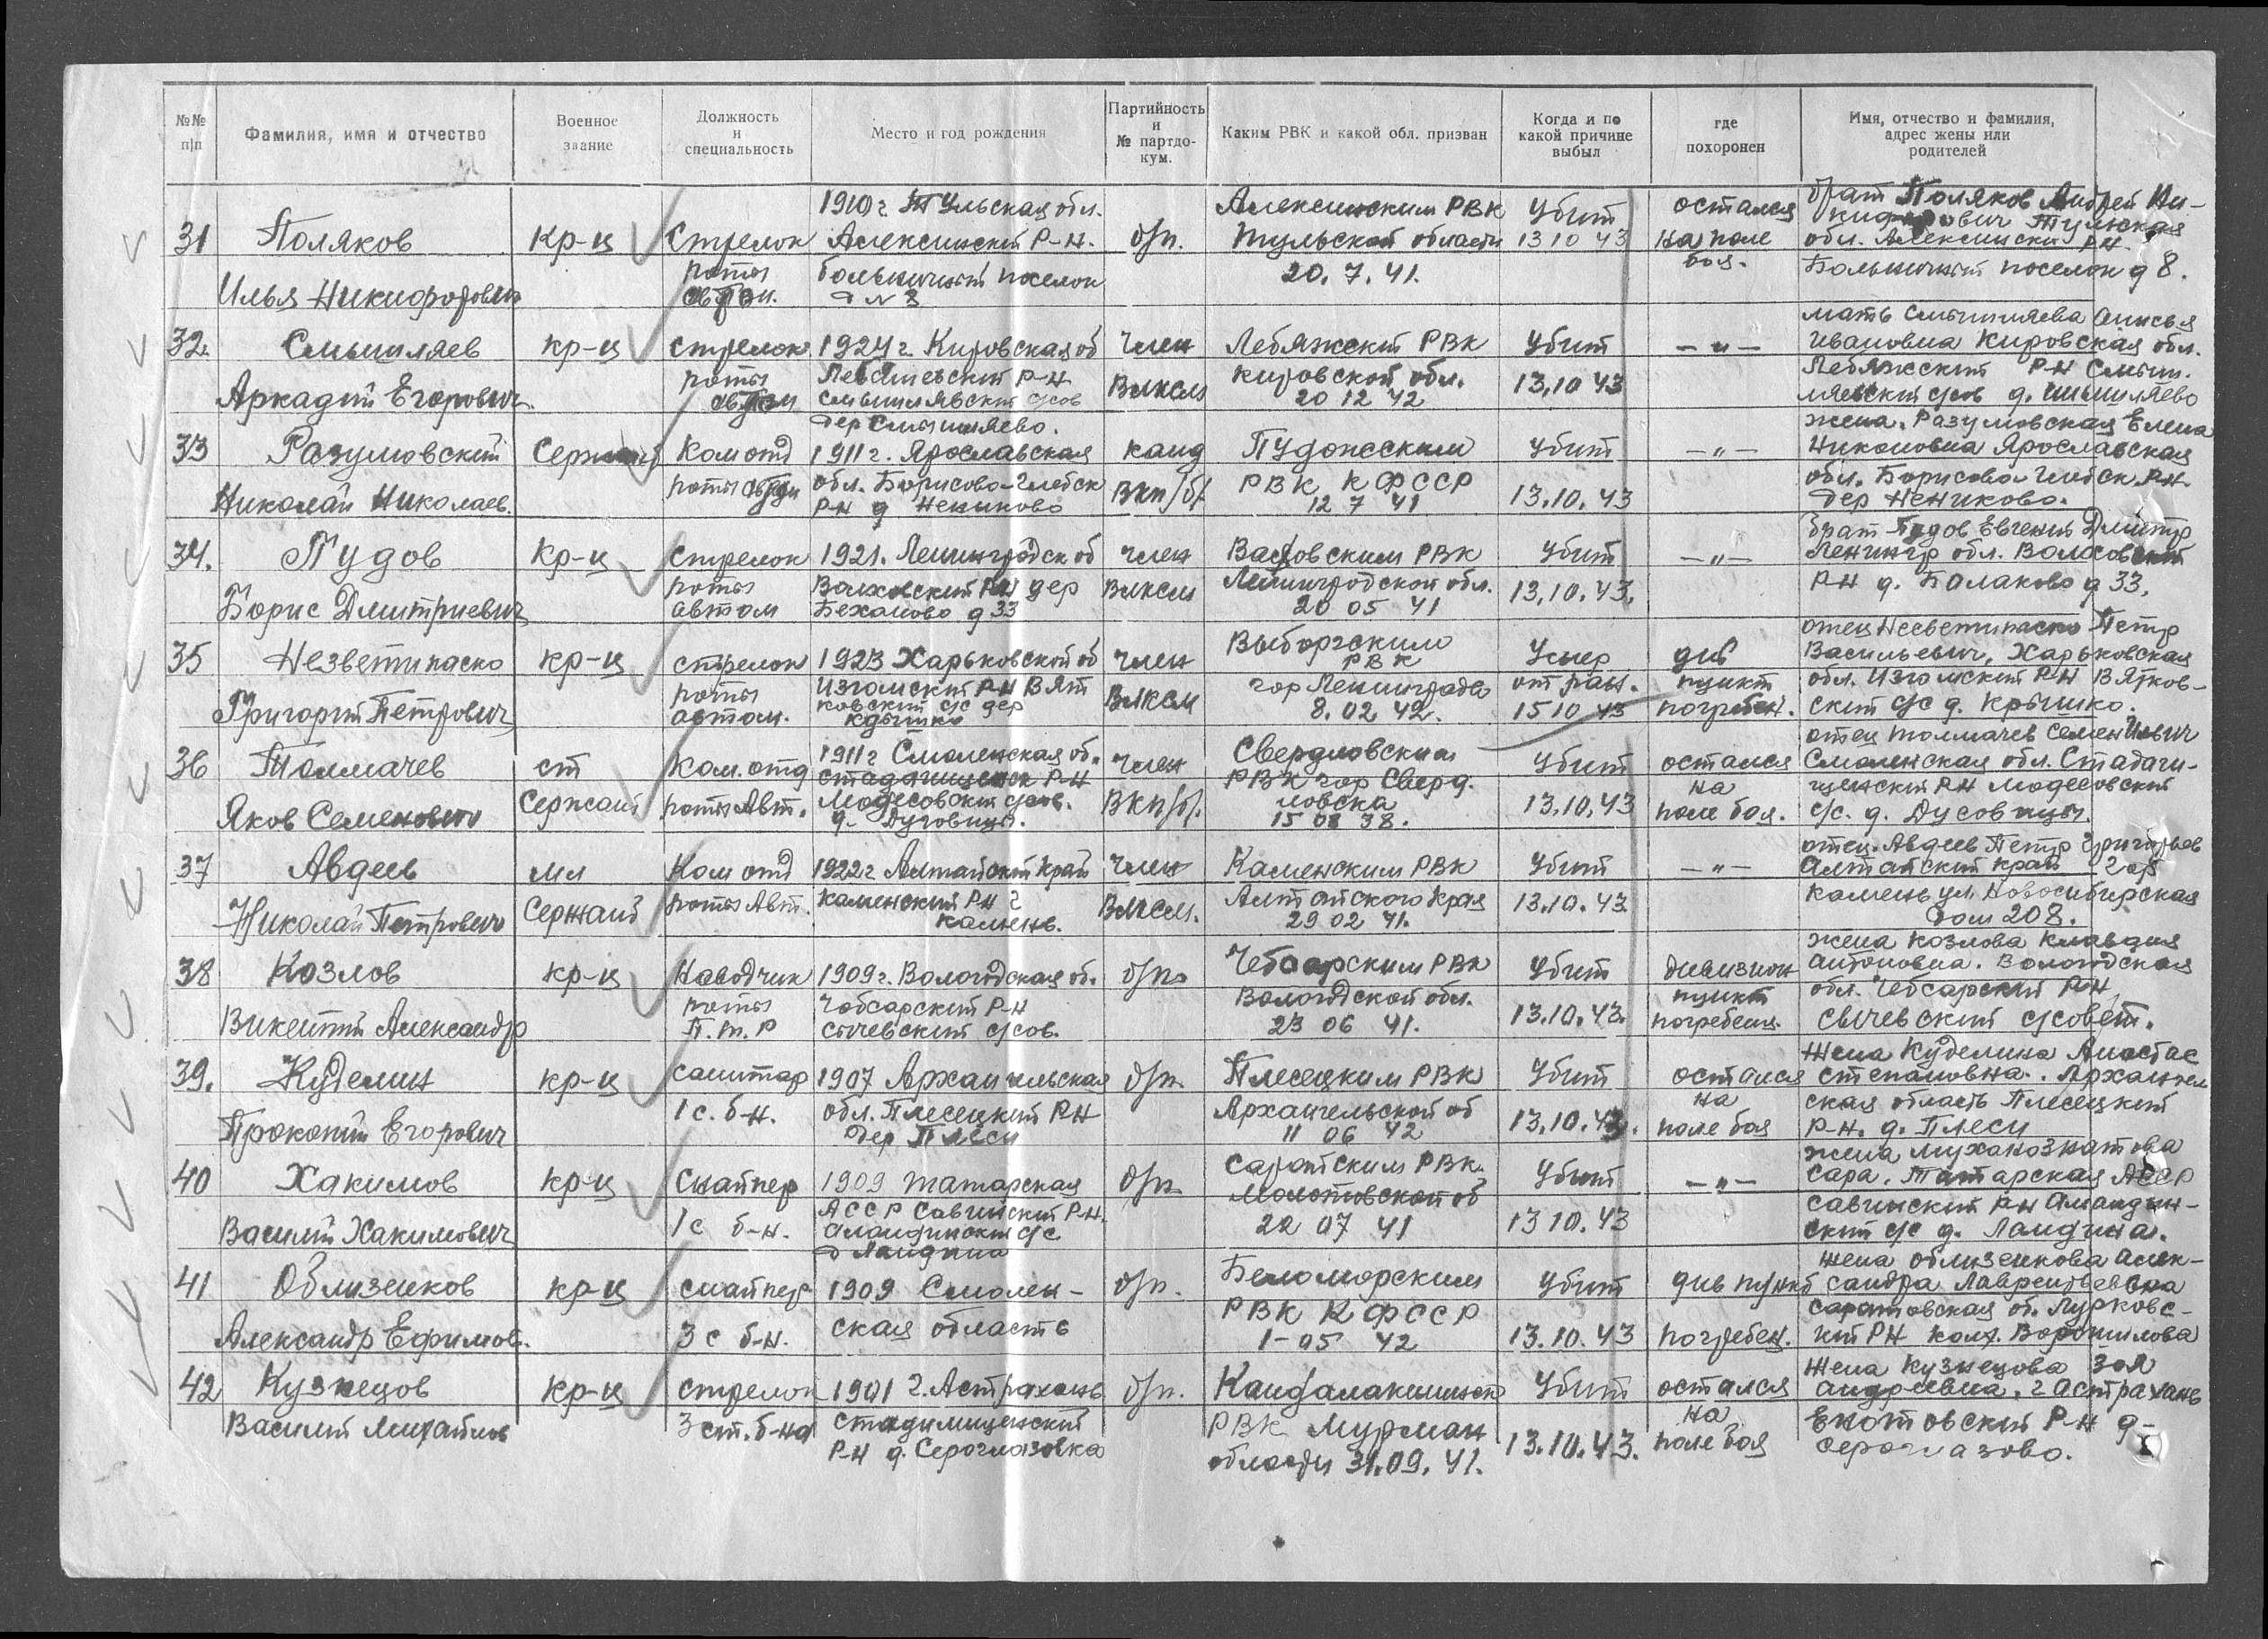 №№ п|п
Фамилия, имя и отчество
Военное звание
Должность и специальность
Место и год рождения
Партийность и № партдо-кум.
Каким РВК и какой обл. призван
Когда и по какой причине выбыл
где похоронен
Имя, отчество и фамилия, адрес жены или родителей
31
Поляков
Илья Никифорович
кр-ц
Стрелок
роты
1910 г Тульская обл.
Алексинский Р-Н.
больничный поселок
д N 8
б/п.
Алексинским РВК
Тульской области
20. 7. 41.
Убит
13 10 43
остался
на поле
боя.
брат Поляков Андрей Ни-
кифорович Тульская
обл. Алексински РН.
Больничный поселок д 8.
32.
Смышляев
Аркадий Егорович
кр-ц
стрелок
роты
1924 г. Кировская об
Р-Н
дер Смышляево.
член
Влксм
Лебяжский РВК
кировской обл.
20 12 42
Убит
13.10 43
— " —
мать Смышляева Анисья
Ивановна Кировская обл.
Лебяжский РН Смыш-
ляевский с/сов д. Смышляево
33
Разумовский
Николай Николаев.
Сержант
Ком отд
роты
1911 г. Ярославская
обл. Борисово-Глебск
Р-Н д Неньково
канд
ВКП/б/.
Пудожским
РВК КФССР
12 7 41
Убит
13.10.43
— " —
жена. Разумовская Елена
Никоновна Ярославская
обл. Борисово-Глебск. Р.Н.
дер Неником.
34.
Пудов
Борис Дмитриевич
Кр-ц
стрелок
роты
автом
1921. Ленинградск об
Волховский РН дер
д 33
член
Влксм
РВК
Ленинградской обл.
20 05 41
Убит
13.10.43.
— " —
брат Пудов Евгений Дмитр
Ленингр обл. Волховский
РН д. Балаково д 33.
35
Незветипаско
Григорий Петрович
кр-ц
стрелок
роты
автом.
1923 Харьковской об
Изюмский РН Вят
ковский с/с дер
член
Влксм
Выборгским
РВК
гор Ленинграда
8. 02 42.
Умер
от ран.
15 10 43
див
пункт
погребен.
отец Несветипаско Петр
Васильевич, Харьковская
обл. Изюмский РН Вятков-
ский с/с д. Крышко.
36
Толмачев
Яков Семенович
ст
Сержант
Ком. отд
роты Авт.
1911 г Смоленская об.
Р-Н
с/сов.
член
ВКП/б/.
Свердловским
РВК гор Сверд.
ловска
15 08 38.
Убит
13.10.43
остался
на
поле боя.
отец Толмачев Семен Ильич
Смоленская обл. Стадаги-
щенский РН Модесовский
с/с. д. Дусовицы.
37
Авдеев
Николай Петрович
мл
Сержант
Ком отд
роты Авт.
1922 г Алтайский Край
Каменский РН г
камень.
член
Влксм.
Каменским РВК
Алтайского Края
29 02 41.
Убит
13.10.43
— " —
отец. Авдеев Петр Григорьев
Алтайский край гор
камень ул. Новосибирская
дом 208.
38
Козлов
Викентий Александр
кр-ц
Наводчик
роты
П.Т.Р
1909 г. Вологодская об.
Чебсарский Р-Н
сычевский с/сов.
б/п.
Чебсарским РВК
Вологодской обл.
23 06 41.
Убит
13.10.43.
дивизион
пункт
погребен.
жена Козлова Клавдия
Антоновна. Вологодская
обл. Чебсарский РН,
сычевский с/совет.
39.
Куделин
Прокопий Егорович
кр-ц
санитар
1 с. б-н.
1907 Архангельская
обл. Плесецкий РН
дер Плеси
б/п.
Плесецким РВК
Архангельской об
11 06 42
Убит
13.10.43.
остался
на
поле боя
Жена Куделина Анастас
степановна. Архангел
ская область Плесецкий
Р-Н. д. Плеси
40
Хакимов
Василий Хакимович
кр-ц
Снайпер
1 с б-н.
1909 Татарская
АССР Савинский Р-Н.
с/с
б/п
РВК.
Молотовской об
22 07 41
Убит
13 10.43
— " —
жена
Сара. Татарская АССР
Савинский РН
ский с/с д.
41
Облизенков
Александр Ефимов.
кр-ц
снайпер
3 с б-н.
1909 Смолен-
ская область
б/п.
Беломорским
РВК КФССР
1-05 42
Убит
13.10.43
див пункт
погребен.
жена Облизенкова Алек-
сандра Лаврентьевна
Саратовская об.
РН колх. Ворошилова
42
Кузнецов
Василий Михайлов
кр-ц
стрелок
3 ст. б-на
1901 г. Астрахань
Р-Н д. Сероглазовка
б/п.
РВК Мурман
области 31.09.41.
Убит
13.10.43.
остался
на
поле боя
Жена Кузнецова Зоя
Андреевна, г Астрахань
Енотовский Р-Н д-
Сероглазово.